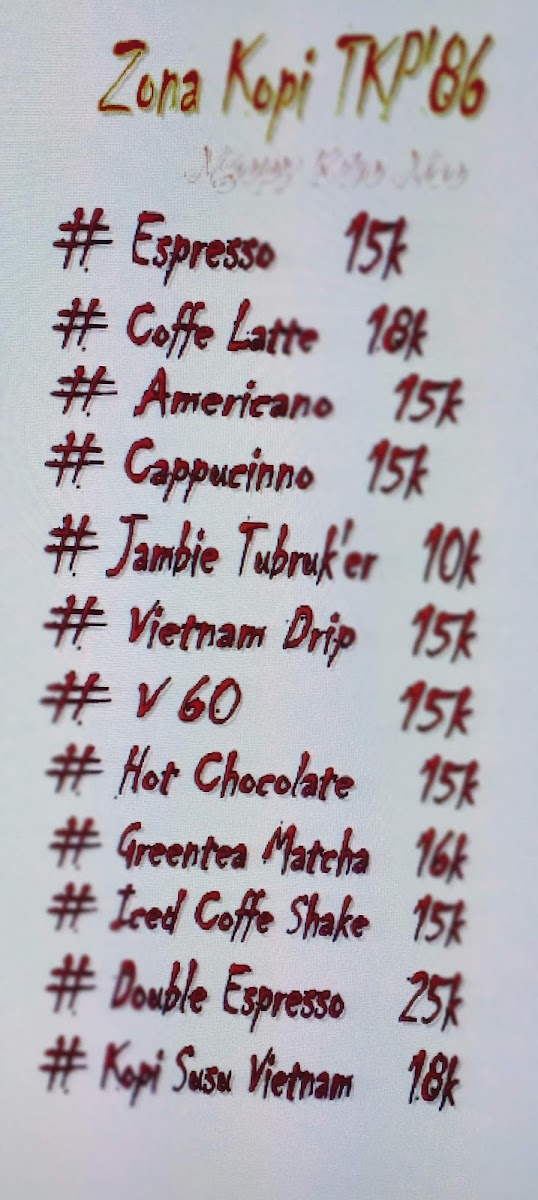 Zona Kopi TKP'86
# Espresso 15k
# Coffe Latte 18k
# Americano 15k
# Cappucinno 15k
# Jambie Tubruk'er 10k
# Vietnam Drip 15k
# V 60 15k
# Hot Chocolate 15k
# Greentea Matcha 16k
# Iced Coffe Shake 15k
# Double Espresso 25k
# Kopi Susu Vietnam 18k